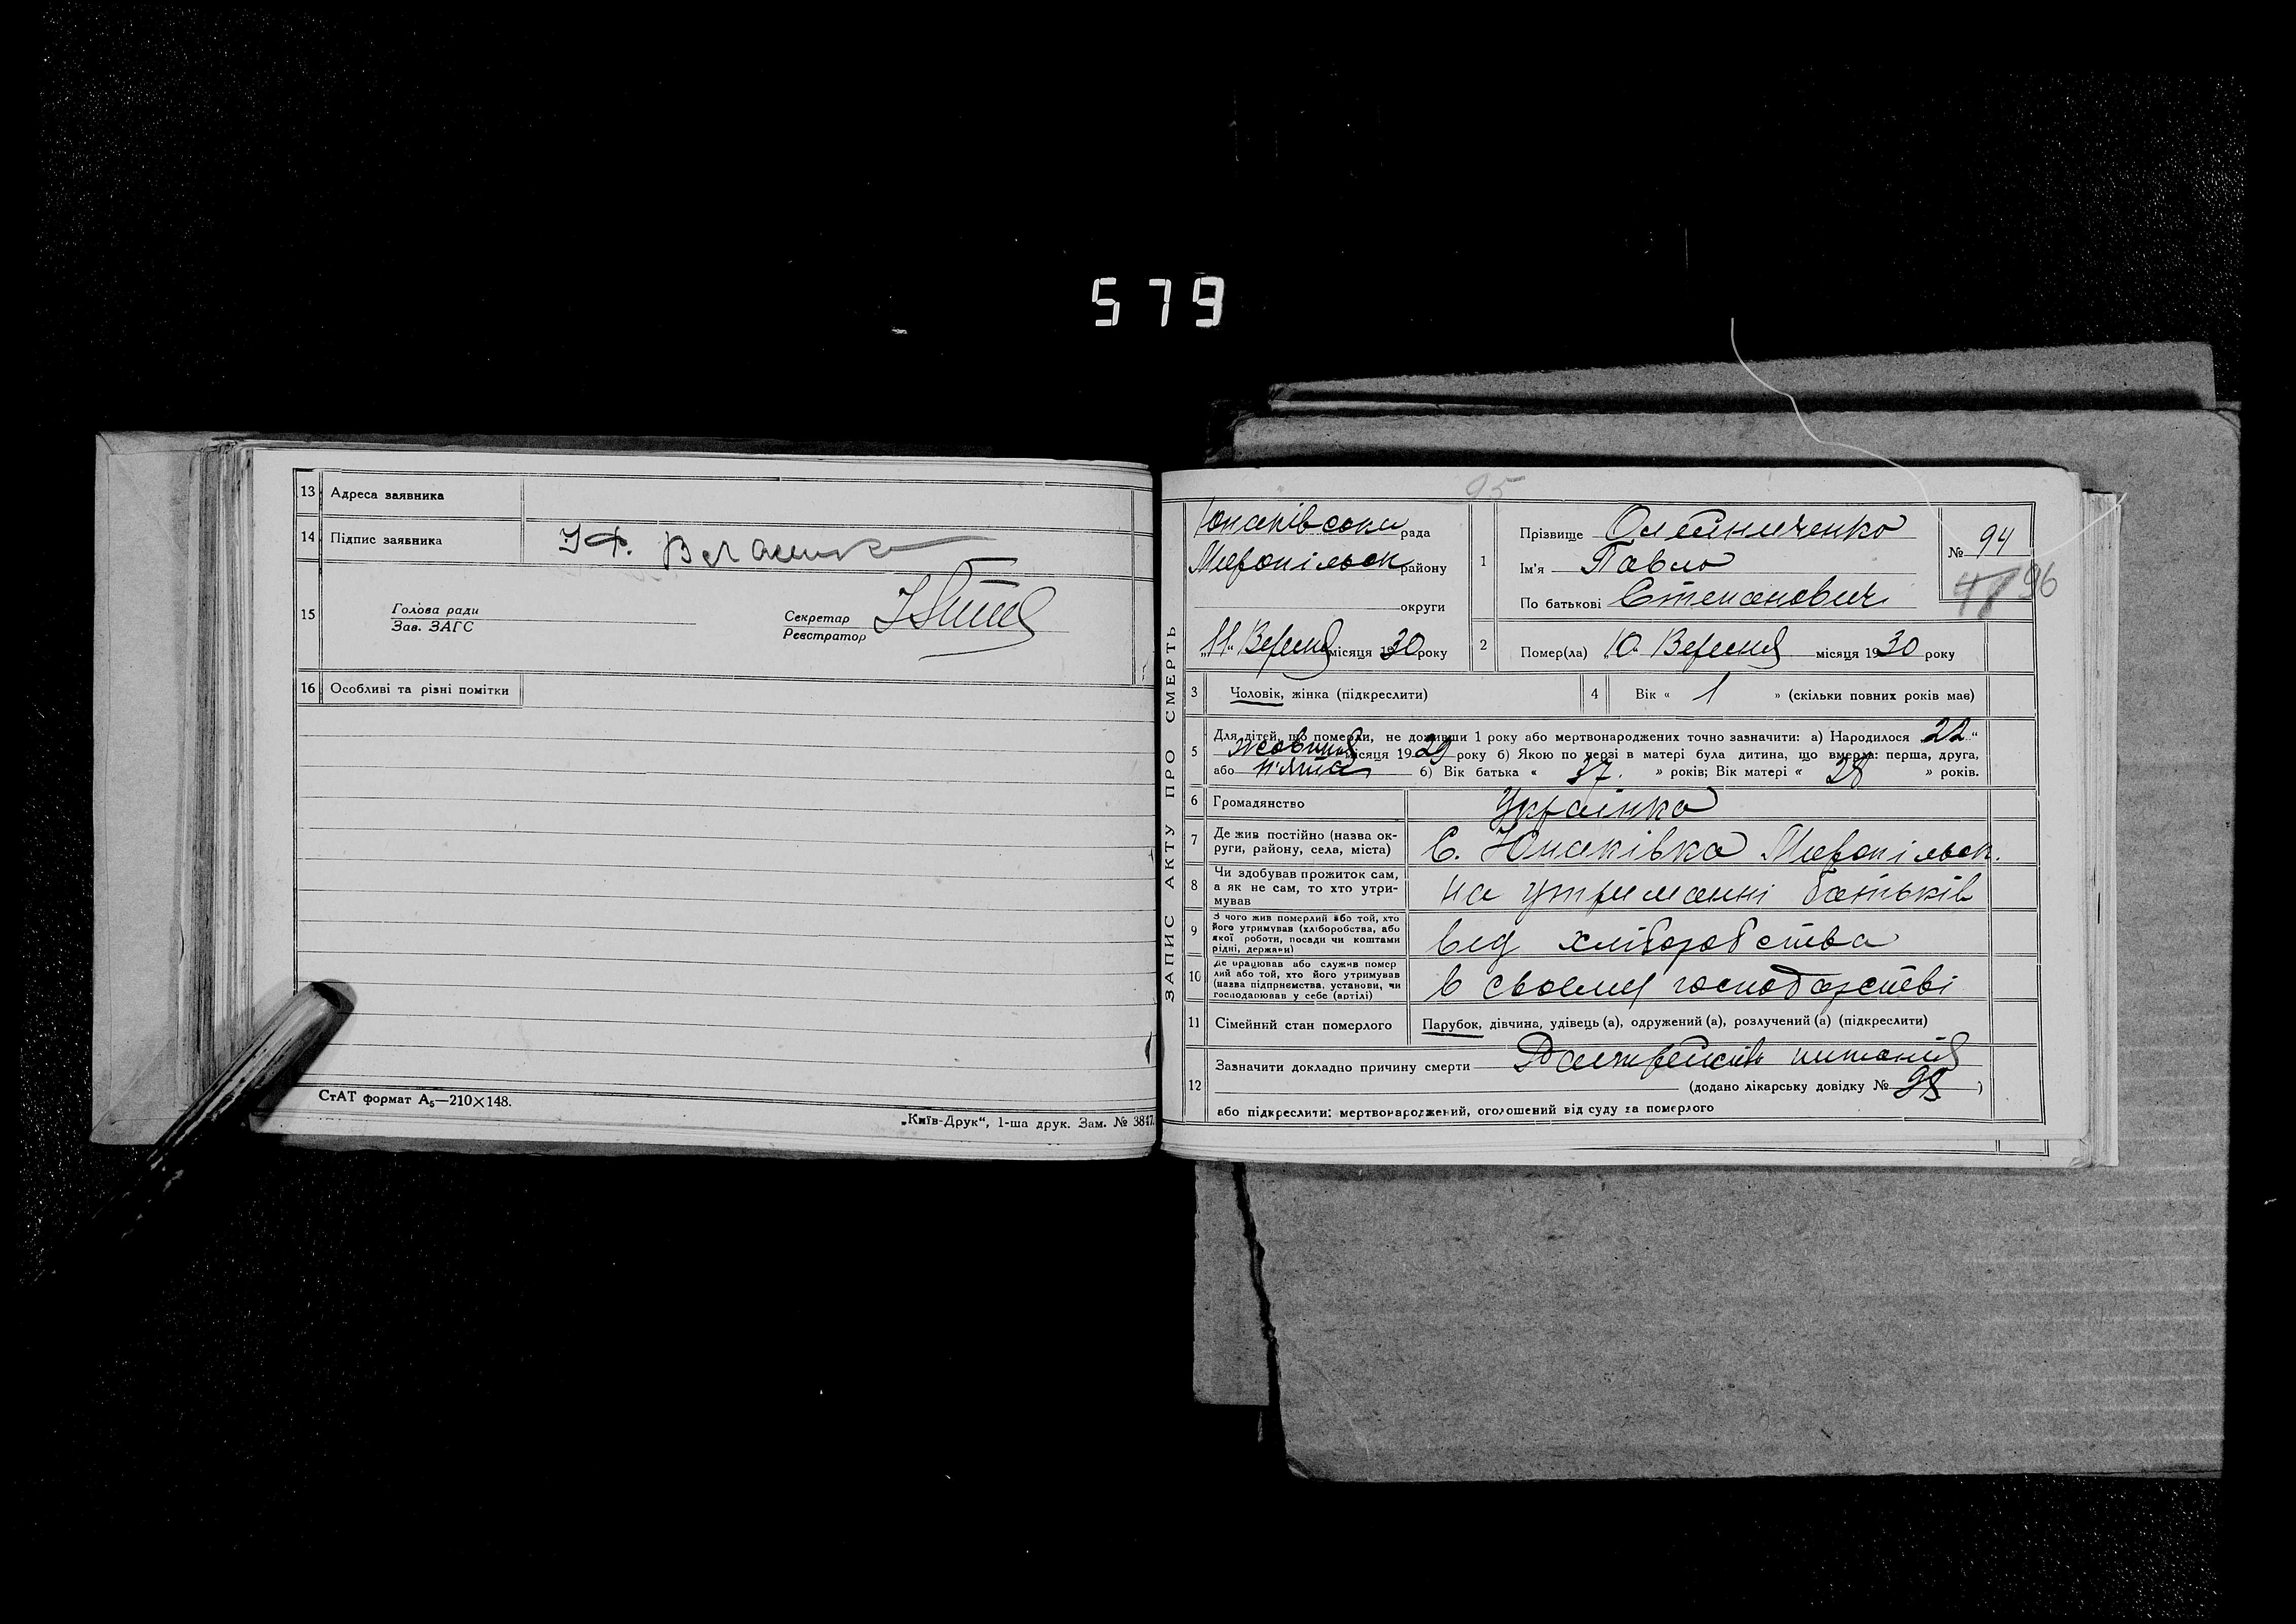 579
13 Адреса заявника
14 Підпис заявника
15 Голова ради
Зав. ЗАГС
Секретар
Реєстратор
16 Особливі та різні помітки
СтАТ формат А₅—210×148.
„Київ-Друк“, 1-ша друк. Зам. № 3847.
95
ЗАПИС АКТУ ПРО СМЕРТЬ
Юнаківська рада
Миропільськ району
округи
„11“ Вересня місяця 1930 року
1 Прізвище Олейниченко
Ім'я Павло
По батькові Степанович
№ 94
96
2 Помер(ла) „10. Вересня місяця 1930 року
3 Чоловік, жінка (підкреслити)
4 Вік « 1 » (скільки повних років має)
5 Для дітей, що померли, не доживши 1 року або мертвонароджених точно зазначити: а) Народилося 22“
жовтня місяця 1929 року б) Якою по черзі в матері була дитина, що вмерла: перша, друга,
або п'ята б) Вік батька « 37. » років; Вік матері « 28 » років.
6 Громадянство Українка
7 Де жив постійно (назва ок-
руги, району, села, міста) С. Юнаківка Миропільськ.
8 Чи здобував прожиток сам,
а як не сам, то хто утри-
мував на утриманні батьків
9 З чого жив померлий або той, хто
його утримував (хліборобства, або
якої роботи, посади чи коштами
рідні, держави) від хліборобства
10 Де працював або служив помер
лий або той, хто його утримував
(назва підприємства, установи, чи
господарював у себе (артілі) в своему господарстві
11 Сімейний стан померлого Парубок, дівчина, удівець (а), одружений (а), розлучений (а) (підкреслити)
12 Зазначити докладно причину смерти
(додано лікарську довідку № 98 )
або підкреслити: мертвонароджений, оголошений від суду за померлого